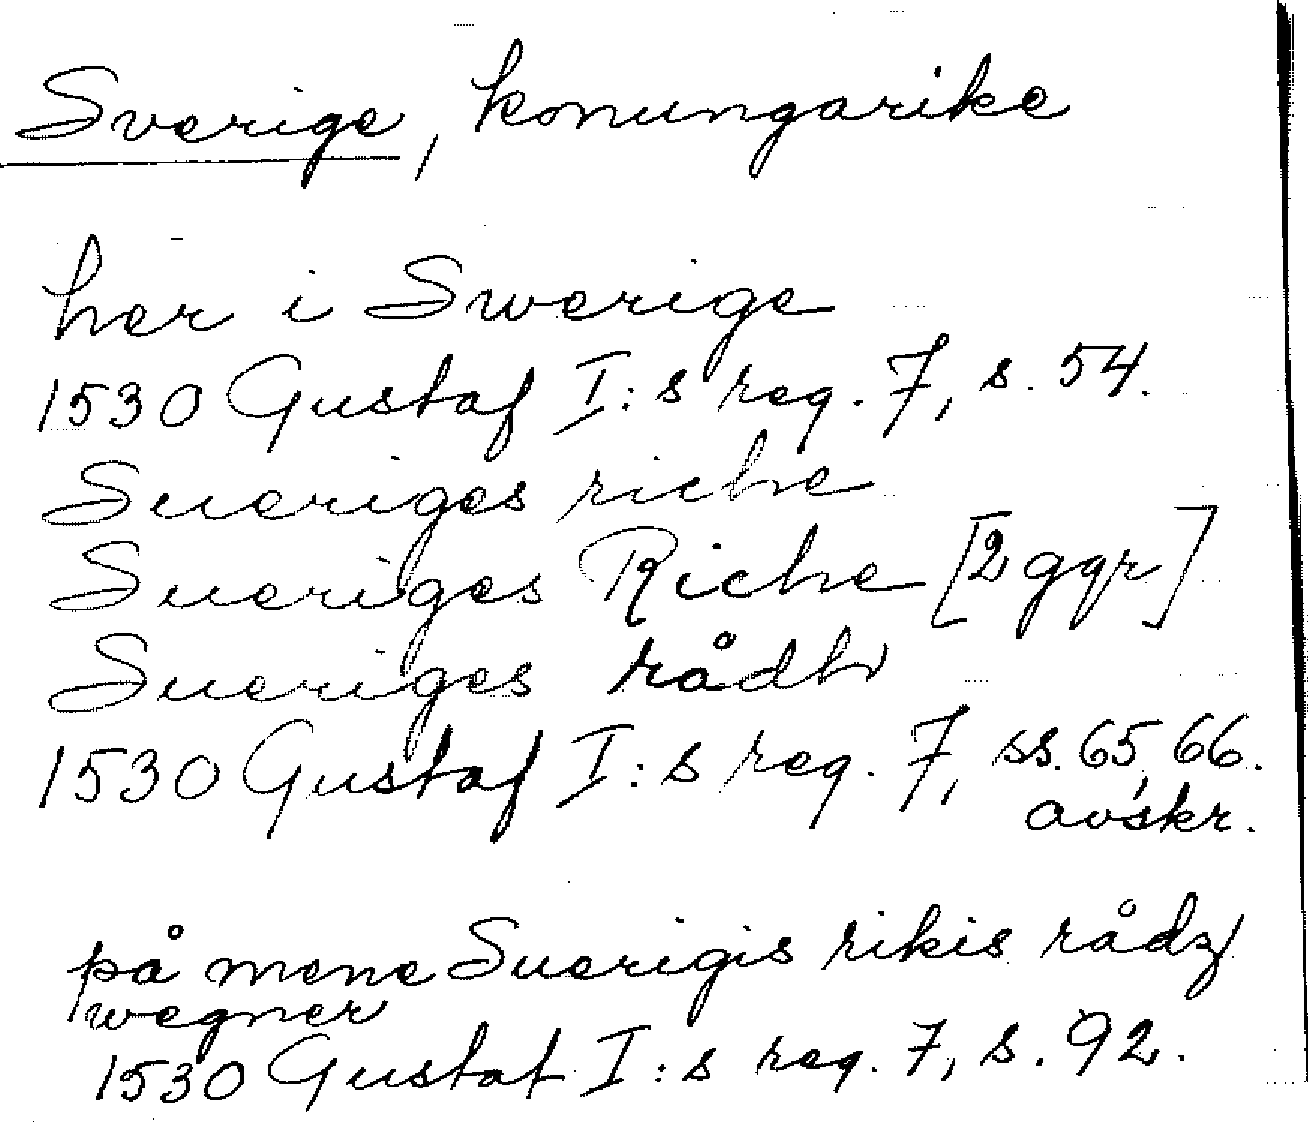 Sverige, konungarike
her i Swerige
1530 Gustaf I:s reg. 7, s. 54.
Sueriges riche
Sueriges Riche [2 ggr]
Sueriges rådh
1530 Gustaf I:s reg. 7, ss. 65, 66.
avskr.
på mene Suerigis rikis rådz
wegner
1530 Gustaf I:s reg. 7, s. 92.